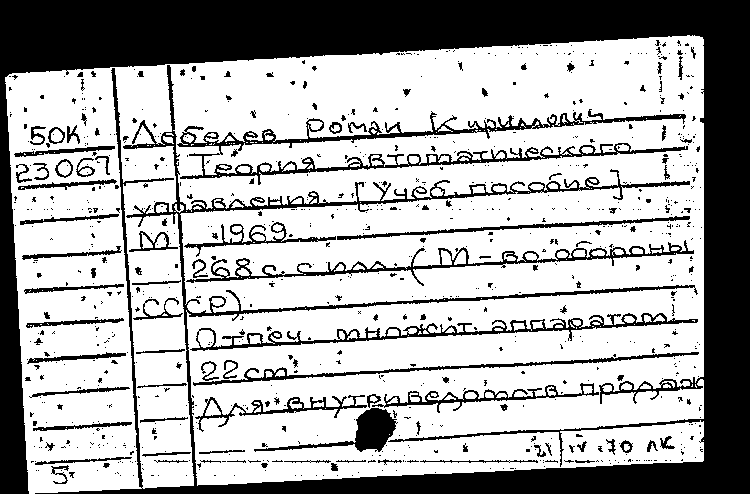 5.0К Лебедев, Роман Кириллович
23067 Теория автоматического
управления. [Учеб. пособие].
М., 1969.
268 с. с илл. (М-во обороны
СССР).
Отпеч. множит. аппаратом.
22 cm.
Для внутриведомств. продаж
21/IV-70 ЛК
5.